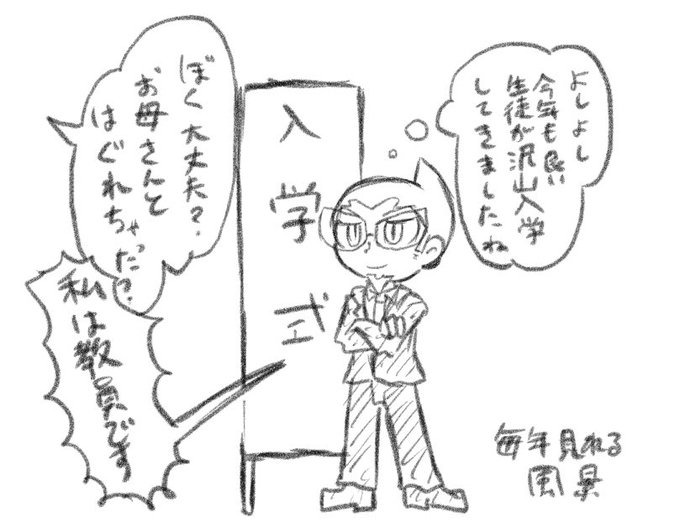 よしよし
今年も良い
生徒が沢山入学
してきましたね
入学式
ぼく大丈夫?
お母さんと
はぐれちゃった?
私は教員です
毎年見れる
風景